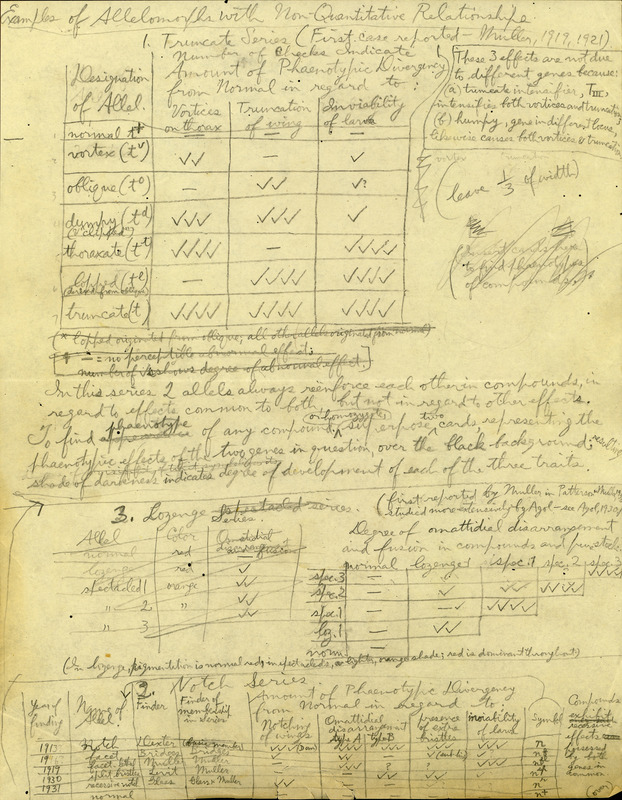 Examples of Allelomorphs with Non-Quantitative Relationships
1. Truncate Series (First case reported — Muller, 1919, 1921)
Number of Checks Indicate
Amount of Phaenotypic Divergency
from Normal in regard to:
Designation of Allel. Vortices on thorax Truncation of wing Inviability of larva
normal t+ — — —
vortex (tv) ✓✓ — ✓
oblique (to) — ✓✓ ✓?
dumpy (td) ✓✓✓ ✓✓✓ ✓
thoraxate (tt) ✓✓✓✓ — ✓✓✓✓
lopped (tl) — ✓✓✓✓ ✓✓✓✓
truncate (t) ✓✓✓✓ ✓✓✓✓ ✓✓✓✓
These 3 effects are not due
to different genes because:
(a) truncate intensifier, TIII,
intensifies both vortices and truncation
(b) humpy, gene in different locus,
likewise causes both vortices & truncation
(leave 1/3 of width)
to find phaenotypes
of compounds
(* Lopped originated from oblique; all other allels originated from normal)
— = no perceptible abnormal effect;
number of ✓s shows degree of abnormal effect.
In this series 2 allels always reenforce each other in compounds, in
regard to effects common to both, but not in regard to other effects.
To find phaenotype of any compound, superpose two cards representing the
phaenotypic effects of the two genes in question, over the black background; resulting
shade of darkness indicates degree of development of each of the three traits.
3. Lozenge spectacled series. (first reported by Muller in
Series. studied more extensively by Agol — see Agol, 1930
Allel Color Ommatidial disarrangement fusion
normal red —
lozenge red ✓
spectacled 1 orange ✓✓
" 2 " ✓✓
" 3 ✓✓
Degree of omatidial disarrangement
and fusion in compounds and pure stocks
normal lozenge 1 spec. 1 spec. 2 spec. 3
spec. 3
spec. 2
spec. 1
lz. 1
norm.
(In lozenge, pigmentation is normal red; in spectacleds, orange shade; red is dominant throughout)
2. Notch Series
Amount of Phaenotypic Divergency
from Normal in regard to:
Year of finding Name of Allel Finder Finder of membership in series Notching of wings Omatidial disarrangement type A type B presence of extra bristles inviability of larva Symbol
Compounds
recessive
effects
possessed
by both
genes in
common
1913 Notch Dexter
facet Bridges Muller
1919 split bristle Muller
1930
1931 recessive notch Glass Glass & Muller
normal
(over)